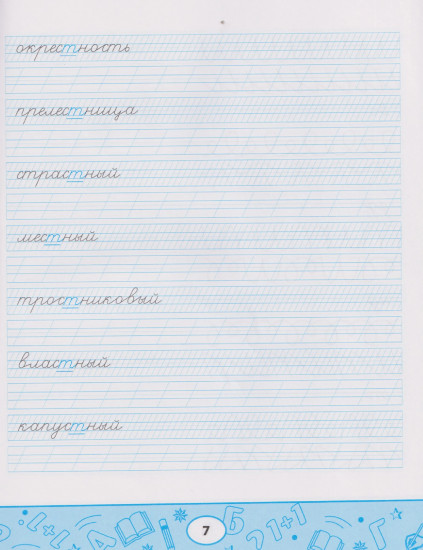 окрестность
прелестница
страстный
местный
тростниковый
властный
капустный
1+1 А 7 Б 2 1+1 Г